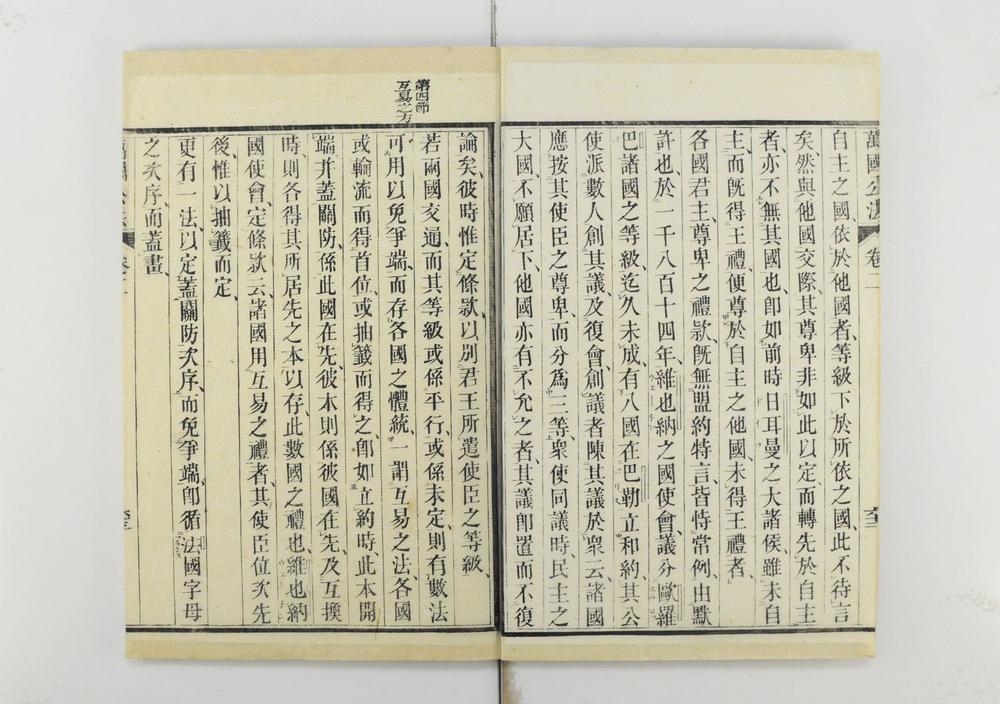 萬國公法 卷二
自主之國依於他國者等級下於所依之國此不待言
矣然與他國交際其尊卑非如此以定而轉先於自主
者亦不無其國也卽如前時日耳曼之大諸侯雖未自
主而旣得王禮便尊於自主之他國未得王禮者
各國君主尊卑之禮款旣無盟約特言皆恃常例由默
許也於一千八百十四年維也納之國使會議分歐羅
巴諸國之等級迄久未成有八國在巴勒立和約其公
使派數人創其議及復會創議者陳其議於衆云諸國
應按其使臣之尊卑而分爲三等衆使同議時民主之
大國不願居下他國亦有不允之者其議卽置而不復
第四節
互易之方
論矣彼時惟定條款以別君王所遣使臣之等級
若兩國交通而其等級或係平行或係未定則有數法
可用以免爭端而存各國之體統一謂互易之法各國
或輪流而得首位或抽籤而得之卽如立約時此本開
端并蓋關防係此國在先彼本則係彼國在先及互換
時則各得其所居先之本以存此數國之禮也維也納
國使會定條款云諸國用互易之禮者其使臣位次先
後惟以抽籤而定
更有一法以定蓋關防次序而免爭端卽循法國字母
之次序而蓋畫
萬國公法 卷二